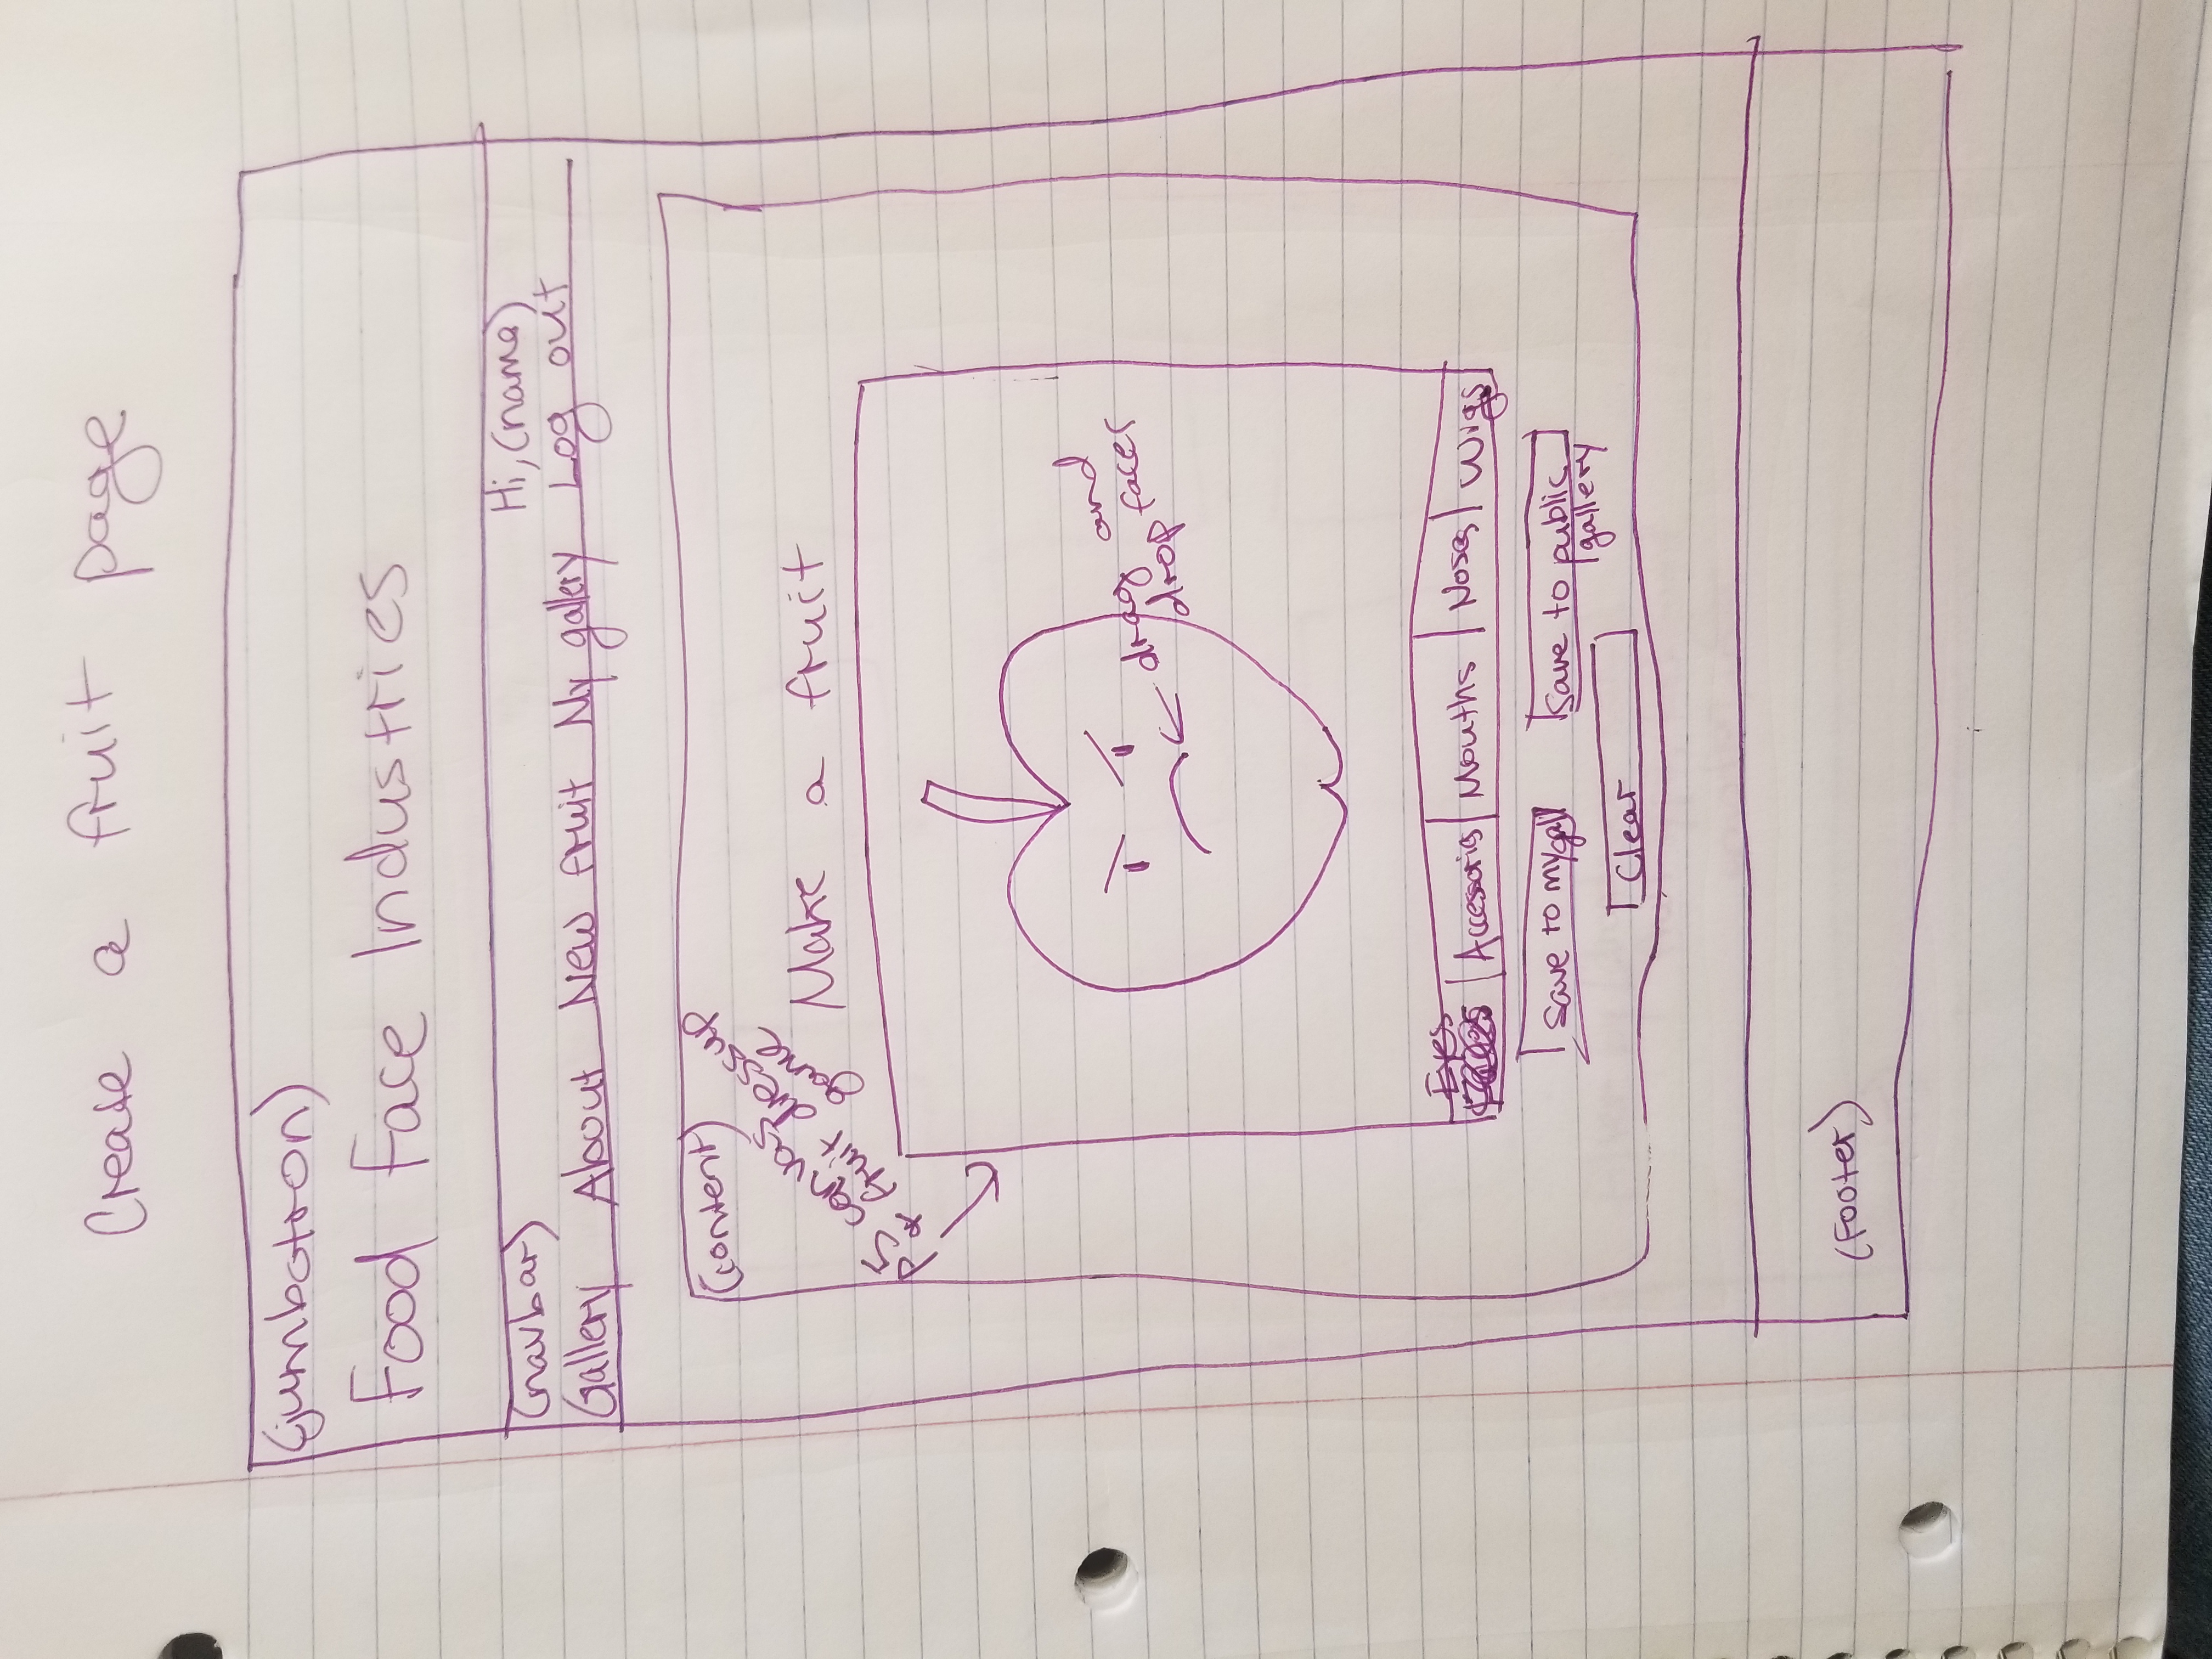 Create a fruit page
(jumbotron)
Food Face Industries
(navbar)
Hi, (name)
Gallery About New fruit My gallery Log out
(content)
p5 canvas
& fruit dressup
game
Make a fruit
drag and
drop faces
Eyes
Accessories Mouths Noses Wigs
Save to my gall
Save to public
gallery
Clear
(Footer)